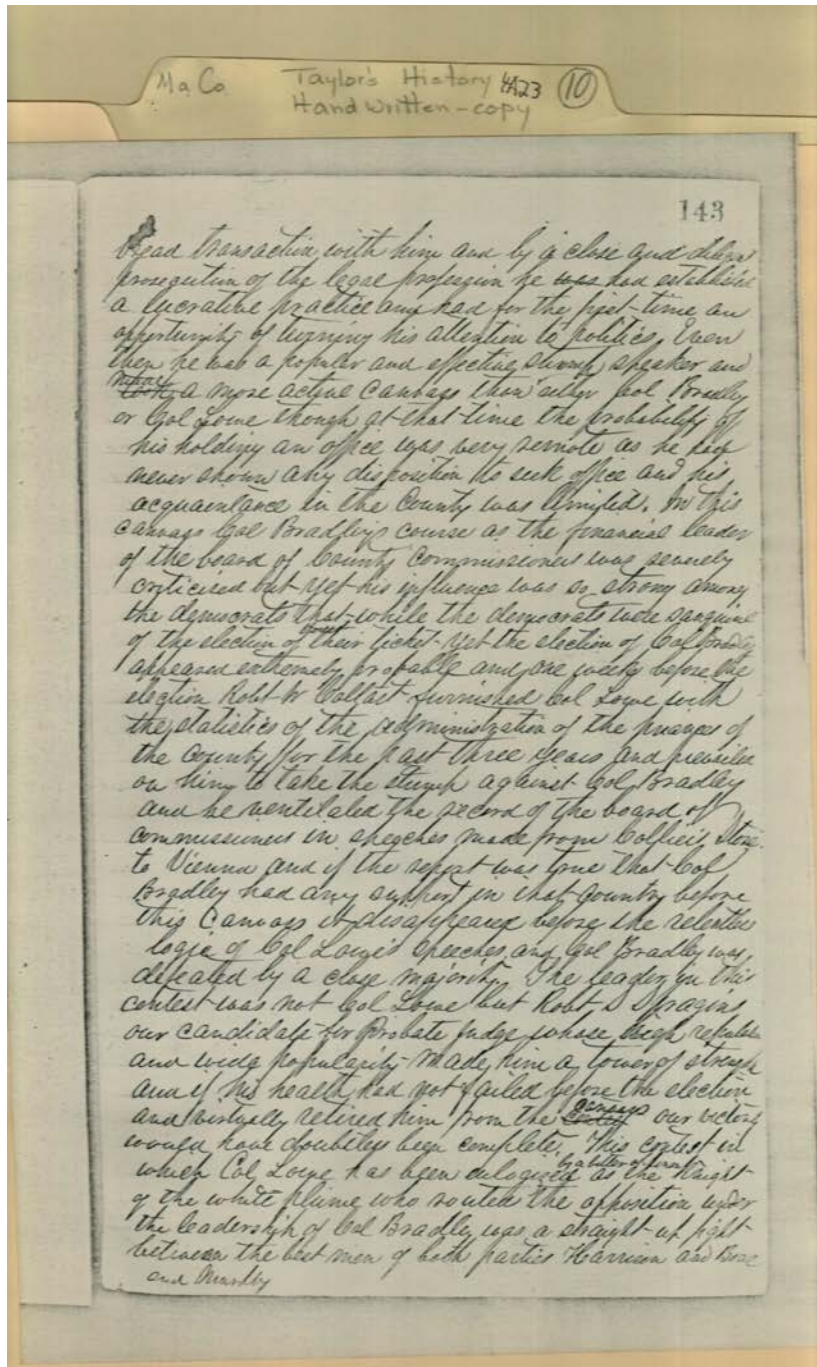 Ma Co Taylor's History 4A23 10
Handwritten-copy
143
transaction with him and by a close and
prosecution of the legal profession he was had established
a lucrative practice and had for the first time an
opportunity of turning his attention to politics. Even
then he was a popular and effective stump speaker and
made
took a more active canvass than either Col Bradley
or Col Lowe though at that time the probability of
his holding an office was very remote as he had
never shown any disposition to seek office and his
acquaintance in the County was limited. In this
canvass Col Bradleys course as the financial leader
of the board of County Commissioners was severely
criticised but yet his influence was so strong among
the democrats that while the democrats were sanguine
of the election of their ticket yet the election of Col Bradley
appeared extremely probable and one week before the
election Robt W Coltart furnished Col Lowe with
the statistics of the administration of the finances of
the County for the past three years and prevailed
on him to take the stump against Col Bradley
and he ventilated the record of the board of
commissioners in speeches made from Colliers Store
to Vienna and if the report was true that Col
Bradley had any support in that country before
this canvass it disappeared before the relentless
logic of Col Lowes speeches, and Col Bradley was
defeated by a close majority. The leader in this
contest was not Col Lowe but Robt S Spragins
our candidate for Probate Judge whose high
and wide popularity made him a tower of strength
and if his health had not failed before the election
and virtually retired him from the canvass our victory
would have doubtless been complete. This contest in
which Col Lowe has been eulogized as the Knight
of the white plume who routed the opposition under
the leadership of Col Bradley was a straight out fight
between the best men of both parties Harrison and
and